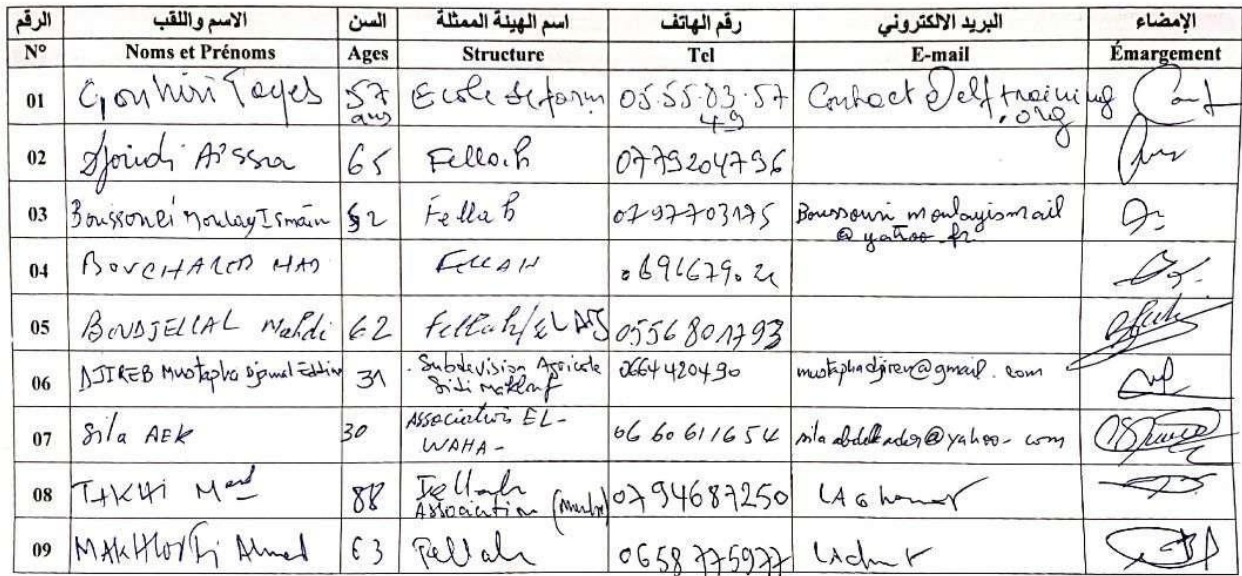 الرقم الاسم واللقب السن اسم الهيئة الممثلة رقم الهاتف البريد الالكتروني الإمضاء
N° Noms et Prénoms Ages Structure Tel E-mail Émargement
01 57 ans Ecole de form 05.55.03.57 49 Contact@elftraining.org
02 Djoudi Aïssa 65 Fellah 0779204796
03 Moulay Ismain Fellah 0797703175 Boussouri moulayismail @yahoo.fr
04 FELLAH
05 BOUDJELLAL Mahdi 62 Fellah/ 0556801793
06 DJIREB Mustapha Djamal Eddine 31 Subdevision Agricole Sidi Makhlouf 0664420490 mustaphadjireb@gmail.com
07 Sila AEK 30 Association EL-WAHA- 0660611654 sila abdelkader@yahoo-com
08 TAKHI Med 88 Fellah Association (membre) 0794687250
09 Ahmed 63 Fellah 0658775977